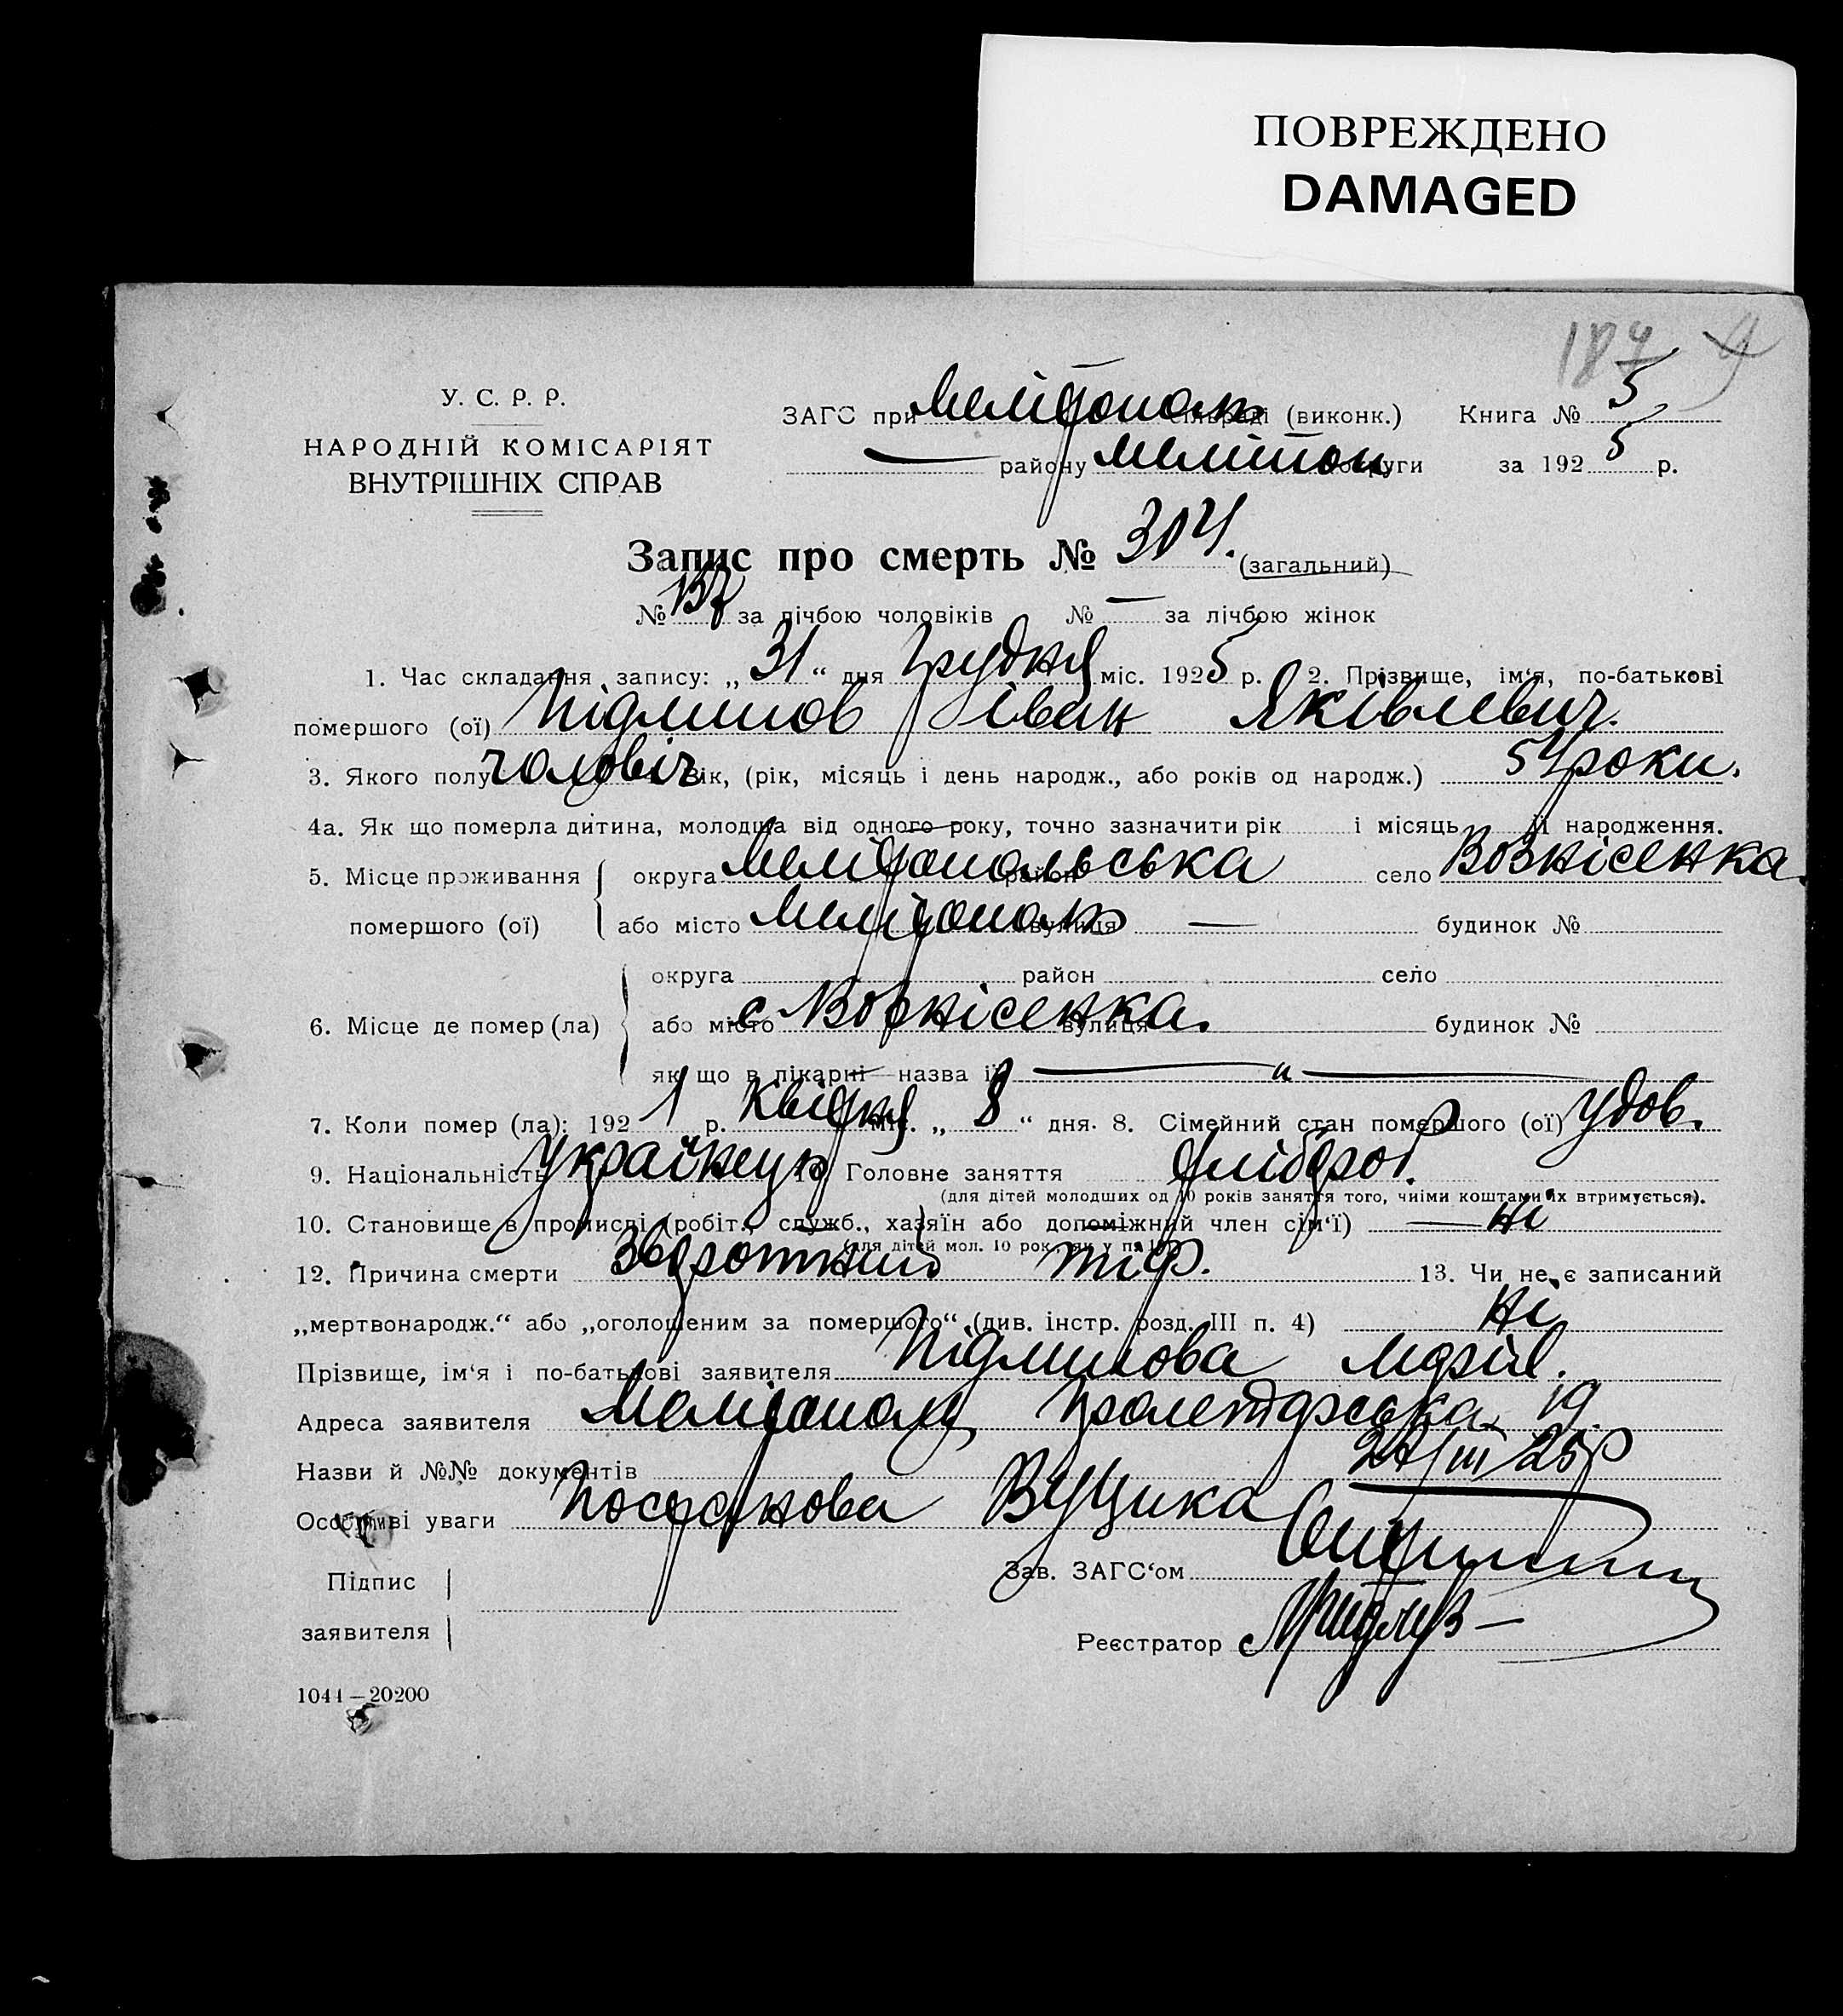 ПОВРЕЖДЕНО
DAMAGED
187
У. С. Р. Р.
НАРОДНІЙ КОМІСАРІЯТ
ВНУТРІШНІХ СПРАВ
ЗАГС при Мелітополь сільраді (виконк.) Книга № 5
— району Мелітоп округи за 1925 р.
Запис про смерть № 304. (загальний)
№ 137 за лічбою чоловіків № — за лічбою жінок
1. Час складання запису: „ 31 “ дня Грудня міс. 1925 р. 2. Прізвище, ім‘я, по-батькові
помершого (ої) Підмилов Іван Яківлевич.
3. Якого полу чоловіч Вік, (рік, місяць і день народж., або років од народж.) 54 роки.
4а. Як що померла дитина, молодша від одного року, точно зазначити рік і місяць її народження.
5. Місце проживання округа Мелітопольська район село Вознісенка.
помершого (ої) або місто Мелітополь вулиця — будинок №
округа район село
6. Місце де помер (ла) або місто с Вознісенка. вулиця будинок №
як що в лікарні — назва її — „ —
7. Коли помер (ла): 1921 р. Квітня міс. „ 8 “ дня. 8. Сімейний стан помершого (ої) удов.
9. Національність українець 10 Головне заняття хлібороб.
(для дітей молодших од 10 років заняття того, чиїми коштами їх втримується).
10. Становище в промислі (робіт., служб., хазяїн або допоміжний член сім‘ї) — ні
(для дітей мол. 10 рок., як у п. 10)
12. Причина смерти Зворотний тиф. 13. Чи не є записаний
„мертвонародж.“ або „оголошеним за помершого“ (див. інстр. розд. III п. 4) ні
Прізвище, ім‘я і по-батькові заявителя Підмилова Марія.
Адреса заявителя Мелітополь Пролетарська 19.
Назви й №№ документів
Особливі уваги Постанова ВУЦика
Підпис
заявителя
Зав. ЗАГС‘ом
Реєстратор
1044—20200